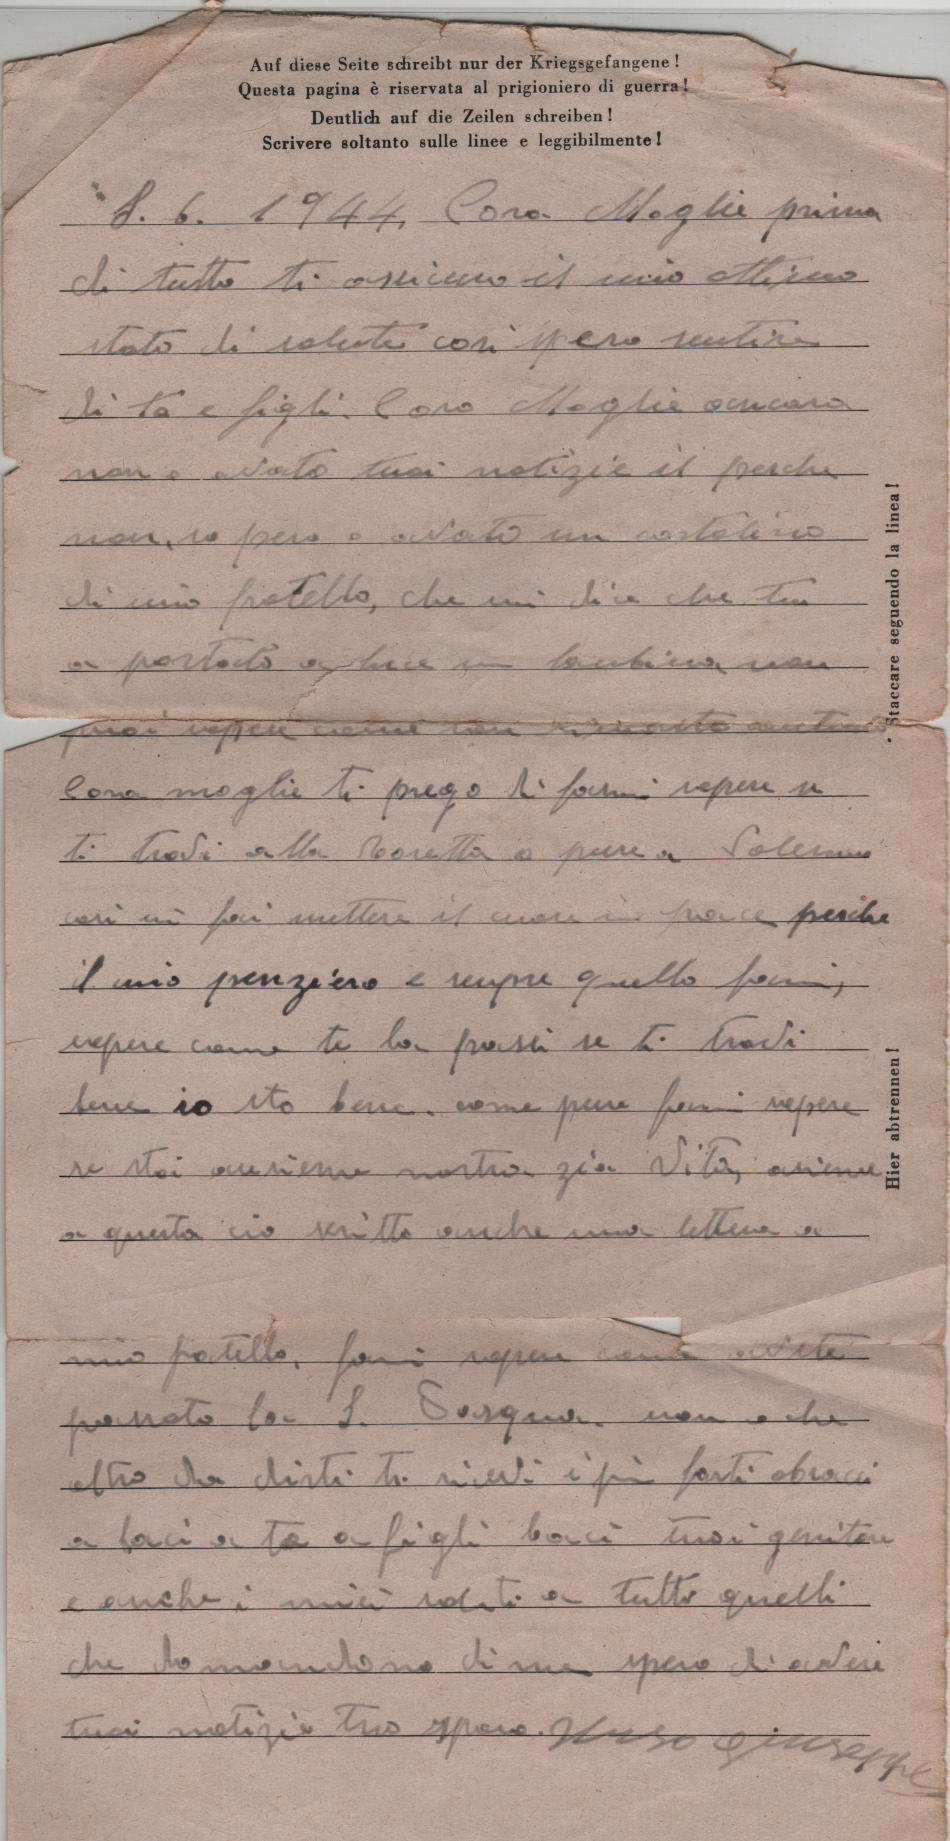 Auf diese Seite schreibt nur der Kriegsgefangene!
Questa pagina è riservata al prigioniero di guerra!
Deutlich auf die Zeilen schreiben!
Scrivere soltanto sulle linee e leggibilmente!
8. 6. 1944, Cara Moglie prima
di tutto ti assicuro il mio ottimo
stato di salute cosi spero sentire
di ta e figli. Cara Moglie ancara
non o avato tuoi notizie il perche
non, so pero o avato un cartolino
di mio fratello, che mi dice che tu
a portato a luce un bambina non
puoi sapere come son rimasto
Cara moglie ti prego di farmi sapere se
ti trovi alla o pure a Salerno
cosi mi fai mettere il cuore in pace perche
il mio penziero e sempre quello fami,
sapere come te la passi se ti trovi
bene io sto bene. come pure fami sapere
se stai ansieme nostra zia Vita, asieme
a questa cio scritto anche una lettera a
mio fratello, fami sapere come avete
passato la S. Pasqua. non o che
altro da dirti ti ricevi i più forti abracci
a baci a ta a figli baci tuoi genitore
e anche i miei saluti a tutto quelli
che domandono di me spero di avere
tuoi notizie tuo sposo. Giuseppe
Staccare seguendo la linea!
Hier abtrennen!